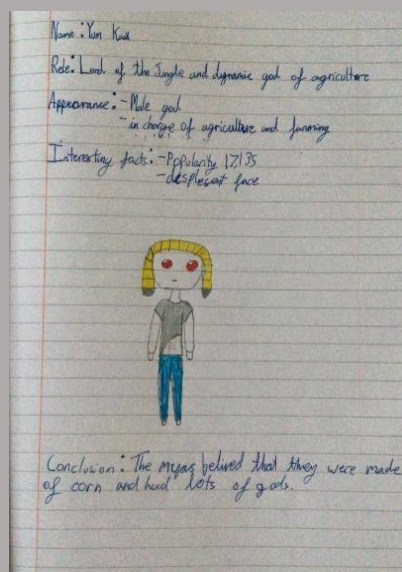 Name: Yum Kaax
Role: Lord of the Jungle and dynamic god of agriculture
Appearance: - Male god
- in charge of agriculture and farming
Interesting facts: - Popularity 17135
- desplesent face
Conclusion: The myas belived that they were made
of corn and had lots of gods.